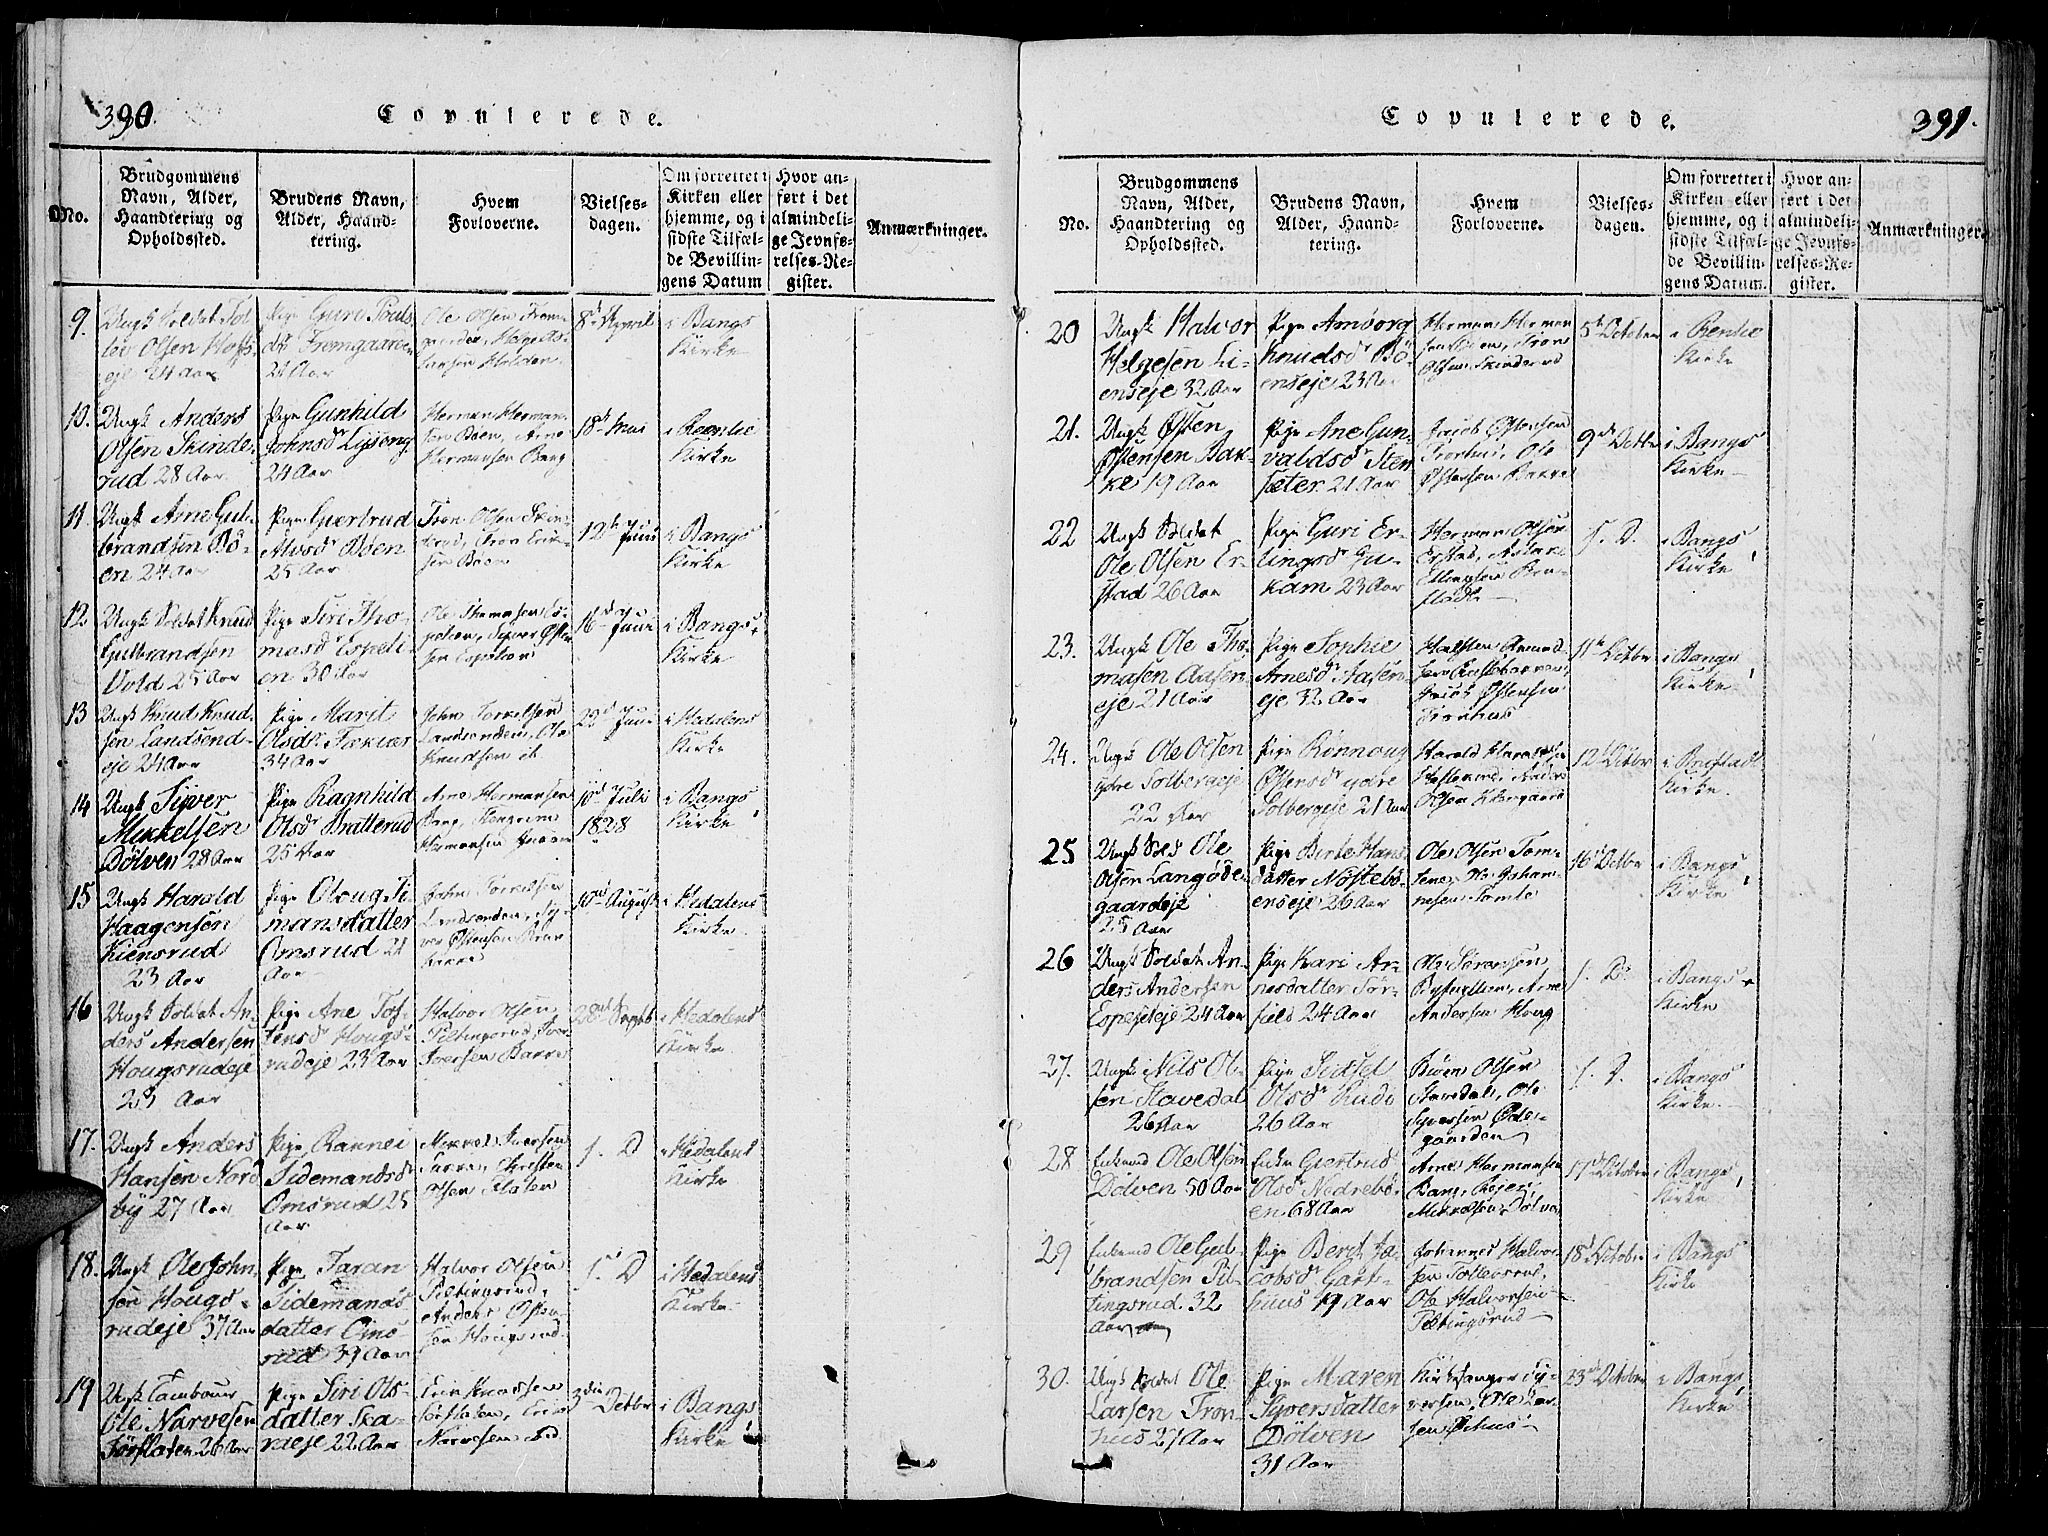 390.
Copulerede.
No.
Brudgommens
Navn, Alder,
Haandtering og
Opholdssted.
Brudens Navn,
Alder, Haand-
tering.
Hvem
Forloverne.
Vielses-
dagen.
Om forrettet i
Kirken eller
hjemme, og i
sidste Tilfæl-
de Bevillin-
gens Datum
Hvor an-
ført i det
almindeli-
ge Jevnfø-
relses-Re-
gister.
Anmærkninger.
9.
Ungk Soldat Tol
lev Olsen Hoffs
eje 24 Aar
Pige Guri Pouls
dr Fremgaarden
21 Aar
8d April
i Bangs
Kirke
10.
Ungk Anders
Olsen Skinde-
rud 28 Aar
Pige Gunhild
Johnsdr
24 Aar
Herman Herman-
sen Bøen, Arne
Hermansen Bang
18d Mai
i Reenlie
Kirke
11.
Ungk Arne Gul-
brandsen Bø-
en 24 Aar
Pige Giertrud
Alvsdr Bøen
25 Aar
Tron Olsen Skin-
derud, Tron Erik-
sen Bøen
12te Juni
i Bangs
Kirke
12
Ungk Soldat Knud
Gulbrandsen
Vold 25 Aar
Pige Siri Tho-
masdr Espeli-
en 30 Aar
Ole Thomasen Es-
pelien, Syver Østen
sen Espelien
16d Juni
i Bangs
Kirke
13
Ungk Knud Knud
sen Landsend-
eje 24 Aar
Pige Marit
Olsdr
34 Aar
John Torkelsen
Landsenden, Ole
Knudsen ib
22d Juni
i Hedalens
Kirke
14
Ungk Syver
Mikkelsen
Dølven 28 Aar
Pige Ragnhild
Olsdr Bratterud
25 Aar
Arne Hermansen
Bang,
Hermansen
10d Juli
1828
i Bangs
Kirke
15
Ungk Harald
Haagensen
Kiensrud
23 Aar
Pige Oloug Si
mansdatter
Omsrud 21
Aar
John Torkelsen
Landsenden, Sy-
ver Østensen
10d August
i Hedalens
Kirke
16
Ungk Soldat An-
ders Andersen
Hougsrudeje
25 Aar
Pige Ane Tos-
tensdr Hougs-
rudeje 23 Aar
Halvor Olsen
Piltingsrud, Iver
Iversen
28d Septb
i Hedalens
Kirke
17.
Ungk Anders
Hansen Nord
by 27 Aar
Pige Rannei
Sidemandsd
Omsrud 25
Aar
Mikkel Iversen
Olsen
s. D
i Hedalens
Kirke
18.
Ungk Ole John
sen Hougs-
rudeje 37 Aar
Pige Taran
Sidemans
datter Oms
rud 39 Aar
Halvor Olsen
Piltingsrud,
Anders Osten
sen Hougsrud
s. D
i Hedalens
Kirke
19
Ungk Tambour
Ole Narvesen
Sørflaten 26 Aar
Pige Siri Ols-
datter Ska-
rseje 22 Aar
Erik Knudsen
Sørflaten, Erik
Narvesen ibd
3die Octbr
i Bangs
Kirke
391.
Copulerede.
No.
Brudgommens
Navn, Alder,
Haandtering og
Opholdssted.
Brudens Navn,
Alder, Haand-
tering.
Hvem
Forloverne.
Vielses-
dagen.
Om forrettet i
Kirken eller
hjemme, og i
sidste Tilfæl-
de Bevillin-
gens Datum.
Hvor an-
ført i det
almindeli-
ge Jevnfø-
relses-Re-
gister.
Anmærkninger.
20
Ungk Halvor
Helgesen Li-
enseje 32 Aar
Pige Amborg
Knudsdr Bø-
enseje 23 Aar
Herman Herman
sen Bøen, Tron
Olsen Skinderud
5te October
i Renlie
Kirke
21.
Ungk Østen
Østensen Bak-
ke 19 Aar
Pige Ane Gun-
valdsdr Sten
sæter 21 Aar
Jacob Østensen
Tronhus, Ole
Østensen Bakke
9de Octbr
i Bangs
Kirke
22
Ungk Soldat
Ole Olsen Er-
stad 26 Aar
Pige Guri Er-
lingsdr Gu-
kam 23 Aar
Herman Olsen
Erstad,
s. D.
i Bangs
Kirke
23.
Ungk Ole Tho-
masen Aasen-
eje 21 Aar
Pige Sophie
Arnesdr Aasen-
eje 32 Aar
Halsten Amund
sen
Jacob Østensen
Tronhus
11te Octbr
i Bangs
Kirke
24.
Ungk Ole Olsen
ydre Solbergeje
22 Aar
Pige Rønnoug
Østensdr ydre
Solbergeje 21 Aar
Harald Haraldsen
Olsen
12te Octbr
i Brufladt
Kirke.
25
Ungk Sold Ole
Olsen Langøde-
gaardeje
25 Aar
Pige Berte Hans
datter Nøstebø-
enseje 26 Aar
Ole Olsen Tom-
Johan-
nesen Tomle
16d Octbr
i Bangs
Kirke
26
Ungk Soldat An-
ders Andersen
Espeseteje 24 Aar
Pige Kari Ar-
nesdatter Tør-
field 24 Aar
Ole Sørensen
Arne
Andersen Houg
s. D.
i Bangs
Kirke
27.
Ungk Nils Ol-
sen Stavedal
26 Aar
Pige Sidsel
Olsdr Rudi
26 Aar
Biørn Olsen
Stavedal, Ole
Syversen Øde-
gaarden
s. D.
i Bangs
Kirke.
28
Enkemd Ole Olsen
Dølven 50 Aar
Enke Giertrud
Olsdr Nedrebø-
en 68 Aar
Arne Hermansen
Bang, Reier
Mikkelsen Dølven
17d October
i Bangs
Kirke
29
Enkemd Ole Gul-
brandsen Pil-
tingsrud. 32
Aar
Pige Berit Ja-
cobsdr Gart-
huus 19 Aar
Johannes Halvor
sen Tollevsrud,
Ole Halvorsen
Piltingsrud
18d October
i Bangs
Kirke
30.
Ungk Soldat Ole
Larsen Tron-
huus 27 Aar
Pige Maren
Syversdatter
Dølven
31 Aar
Kirkesanger Sy-
versen, Ole Lar-
sen
23d October
i Bangs
Kirke